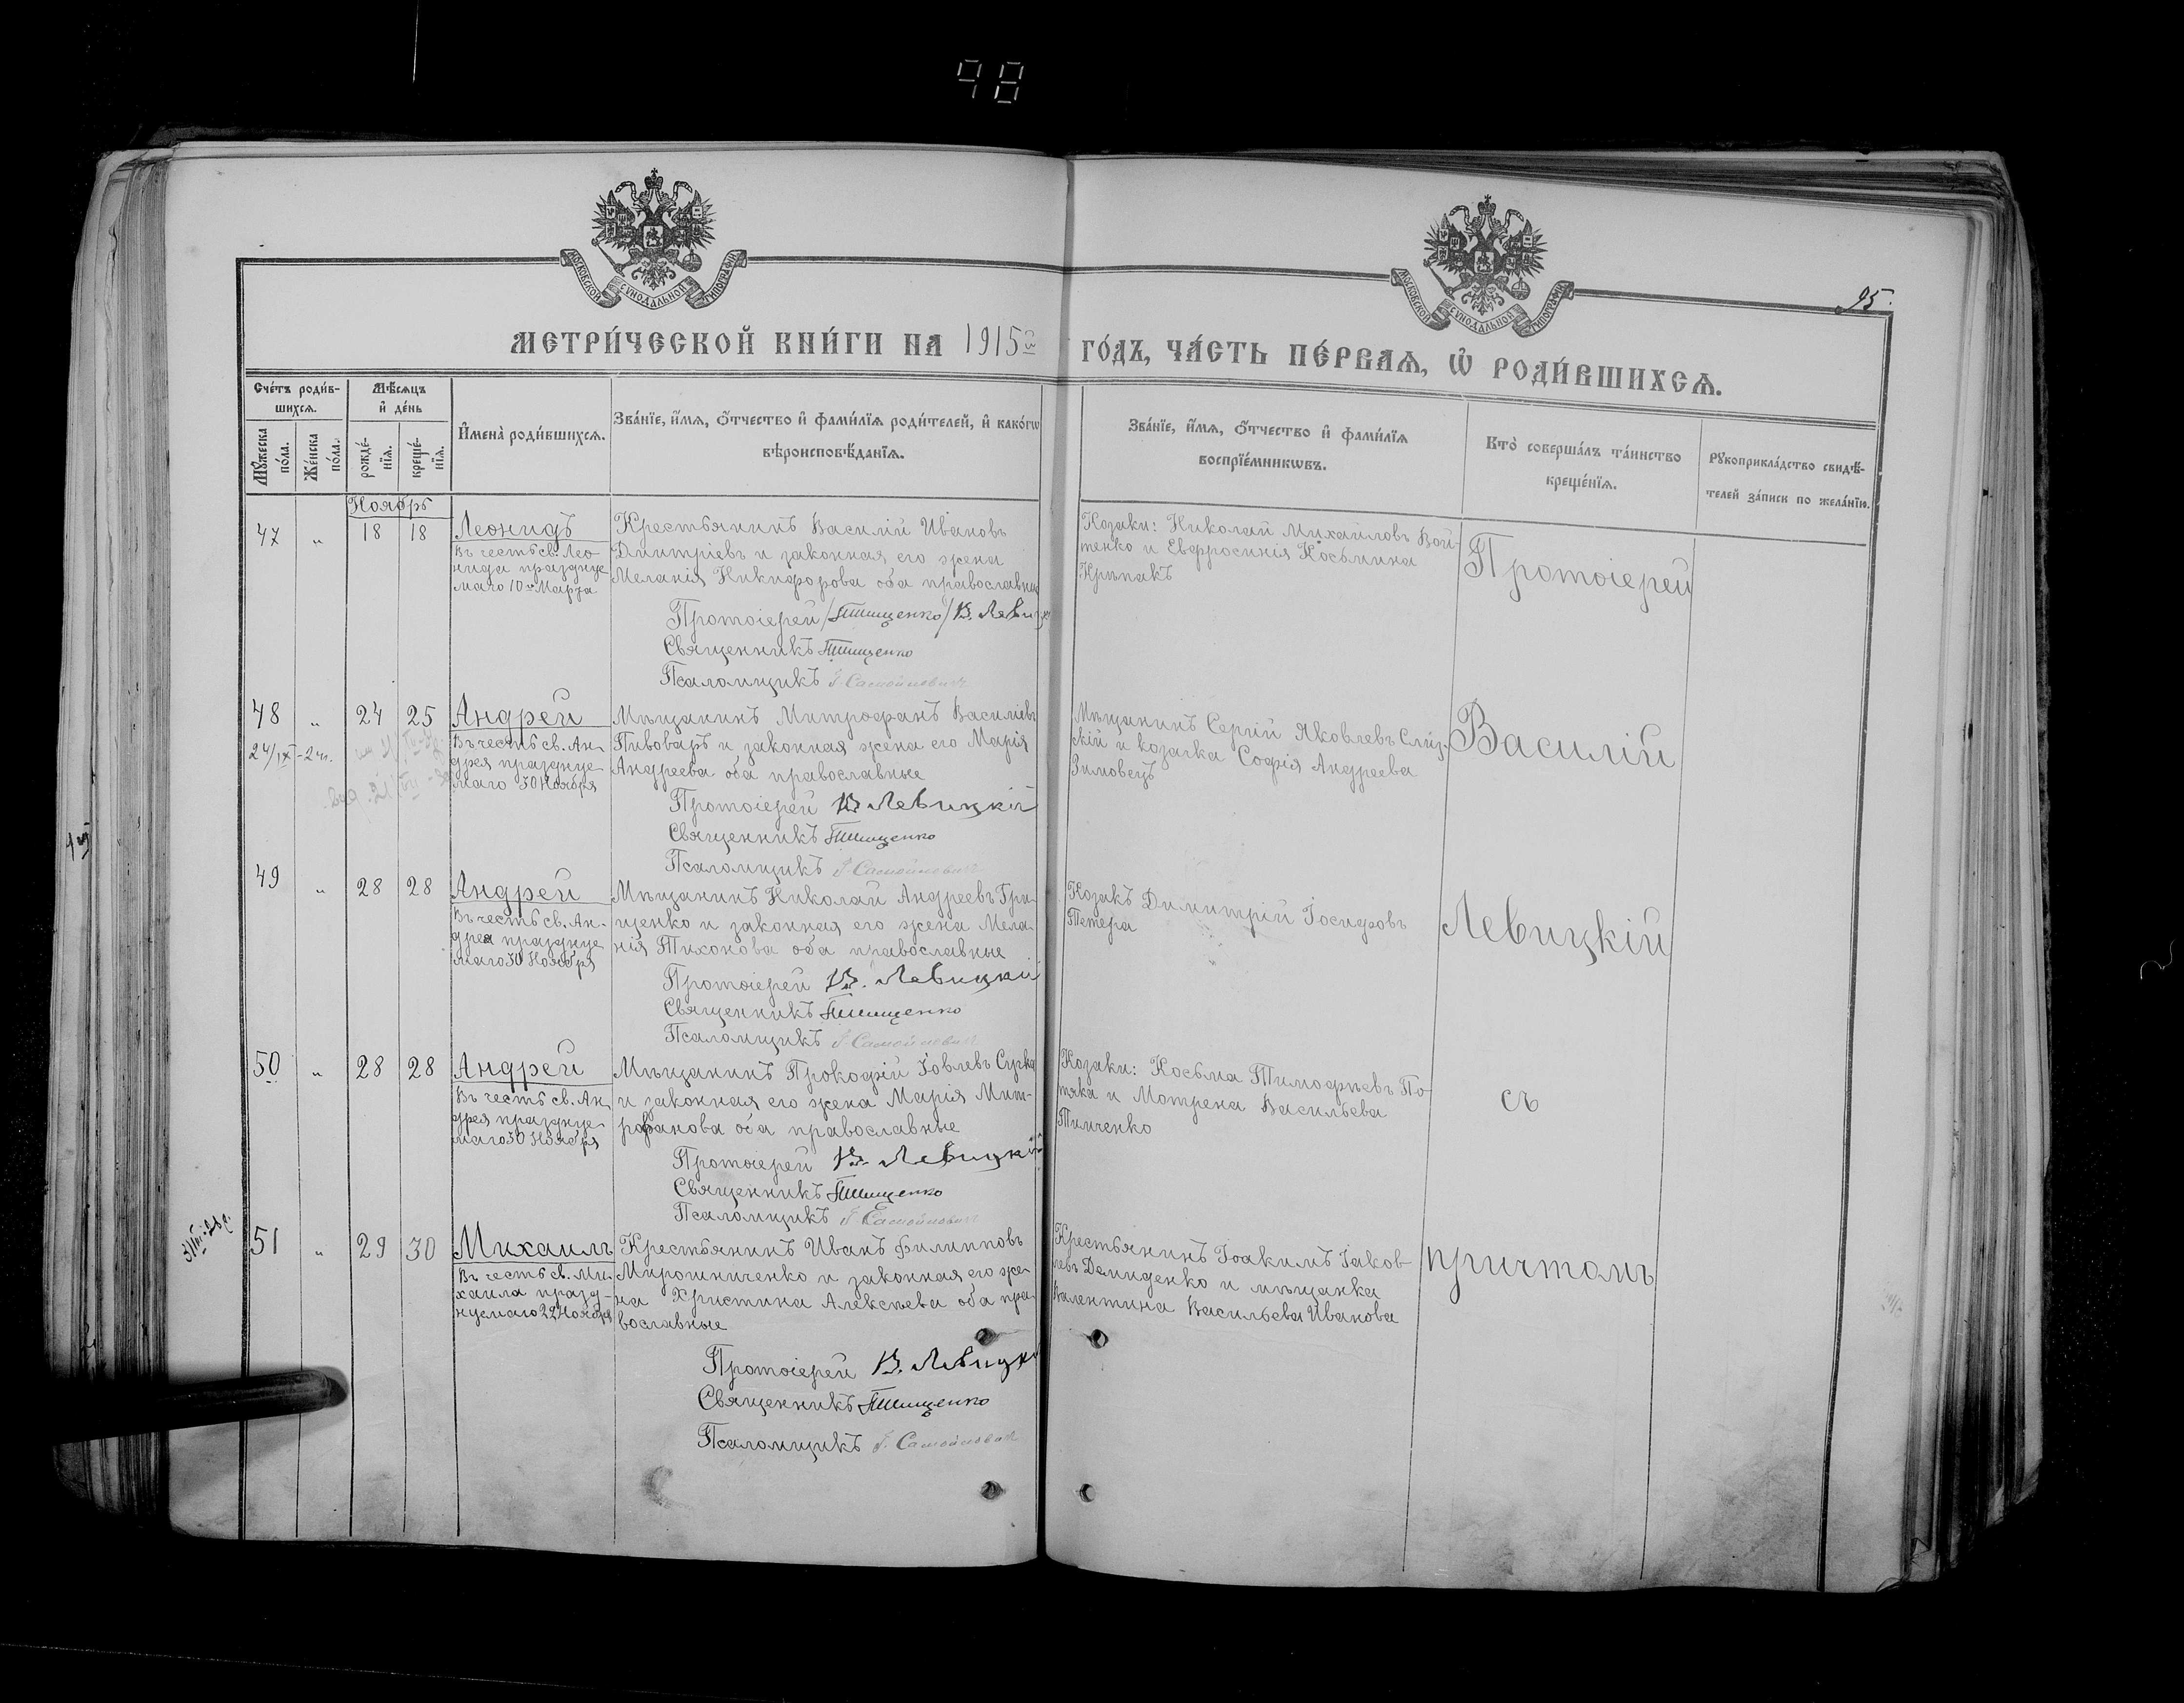 98
МОСКОВСКОЙ СУНОДАЛЬНОЙ ТИПОГРАФІИ
МОСКОВСКОЙ СУНОДАЛЬНОЙ ТИПОГРАФІИ
95.
МЕТРИ́ЧЕСКОЙ КНИ́ГИ НА 1915й ГО́ДЪ, ЧА́СТЬ ПЕ́РВАѦ, Ѿ РОДИ́ВШИХСѦ.
Сче́тъ роди́в-
шихсѧ.
Мꙋ́жеска
по́ла.
Же́нска
по́ла.
Мѣ́сѧцъ
и҆ де́нь
рожде́-
нїѧ.
креще́-
нїѧ.
И҆мена̀ роди́вшихсѧ.
Зва́нїе, и҆́мѧ, ѻ҆́тчество и҆ фами́лїѧ роди́телей, и҆ како́гѡ
вѣроисповѣ́данїѧ.
Зва́нїе, и҆́мѧ, ѻ҆́тчество и҆ фами́лїѧ
воспрїе́мникѡвъ.
Кто̀ соверша́лъ та́инство
креще́нїѧ.
Рꙋкоприкла́дство свидѣ́-
телей за́писи по жела́нїю.
Ноябрь
47 „ 18 18 Леонидъ
Въ честь св. Лео-
нида праздnуе
маго 10го Марта
Крестьянинъ Василій Ивановъ
Дмитріевъ и законная его жена
Меланія Никифорова оба православные
Протоіерей /Тищенко/ В. Левицкі
Священникъ Тищенко
Псаломщикъ І. Самойлович
Козаки: Николай Михайловъ Вой-
тенко и Евфросинія Косьмина
Протоіерей
48 „ 24 25 Андрей
24/IX - 24г.
Въ честь св. Ан-
дрея праздnуе-
маго 30 Ноября
Мѣщанинъ Митрофанъ Василіевъ
Пивоваръ и законная жена его Марія
Андреева оба православные
Протоіерей В Левицкій
Священникъ Тищенко
Псаломщикъ І. Самойлович
Мѣщанинъ Сергій Яковлевъ
скій и козачка Софія Андреева
Зимовецъ
Василій
49 „ 28 28 Андрей
Въ честь св. Ан-
дрея праздnуе
маго 30 Ноября
Мѣщанинъ Николай Андреевъ Гри-
щенко и законная его жена Мела-
нія Тихонова оба православные
Протоіерей В. Левицкій
Священникъ Тищенко
Псаломщикъ І. Самойлович
Козакъ Димитрій Іосифовъ
Петера
Левицкій
50 „ 28 28 Андрей
Въ честь св. Ан
дрея праздnуе-
маго 30 Ноября
Мѣщанинъ Прокофій Іовлевъ
и законная его жена Марія Мит-
рофанова оба православные
Протоіерей В. Левицкій
Священникъ Тищенко
Псаломщикъ І. Самойлович
Козаки: Косьма Тимофѣевъ По-
тяка и Мотрена Васильева
Тимченко
съ
51 „ 29 30 Михаилъ
Въ честь св. Ми-
хаила празд-
нуемаго 22 Ноября
Крестьянинъ Иванъ Филипповъ
Мирошниченко и законная его же-
на Христина Алексѣева оба пра-
вославные
Протоіерей В. Левицкі
Священникъ Тищенко
Псаломщикъ І. Самойлович
Крестьянинъ Іоакимъ Іаков-
левъ Демиденко и мѣщанка
Валентина Васильева Иванова
причтомъ